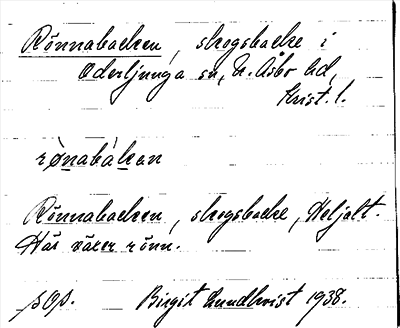 Rönnabacken, skogsbacke i
Oderljunga sn, N. Åsbo hd,
Krist. l.
rø̀nabákan
Rönnabacken, skogsbacke, Heljalt.
Här växer rönn.
pgp. Birgit Lundkvist 1938.